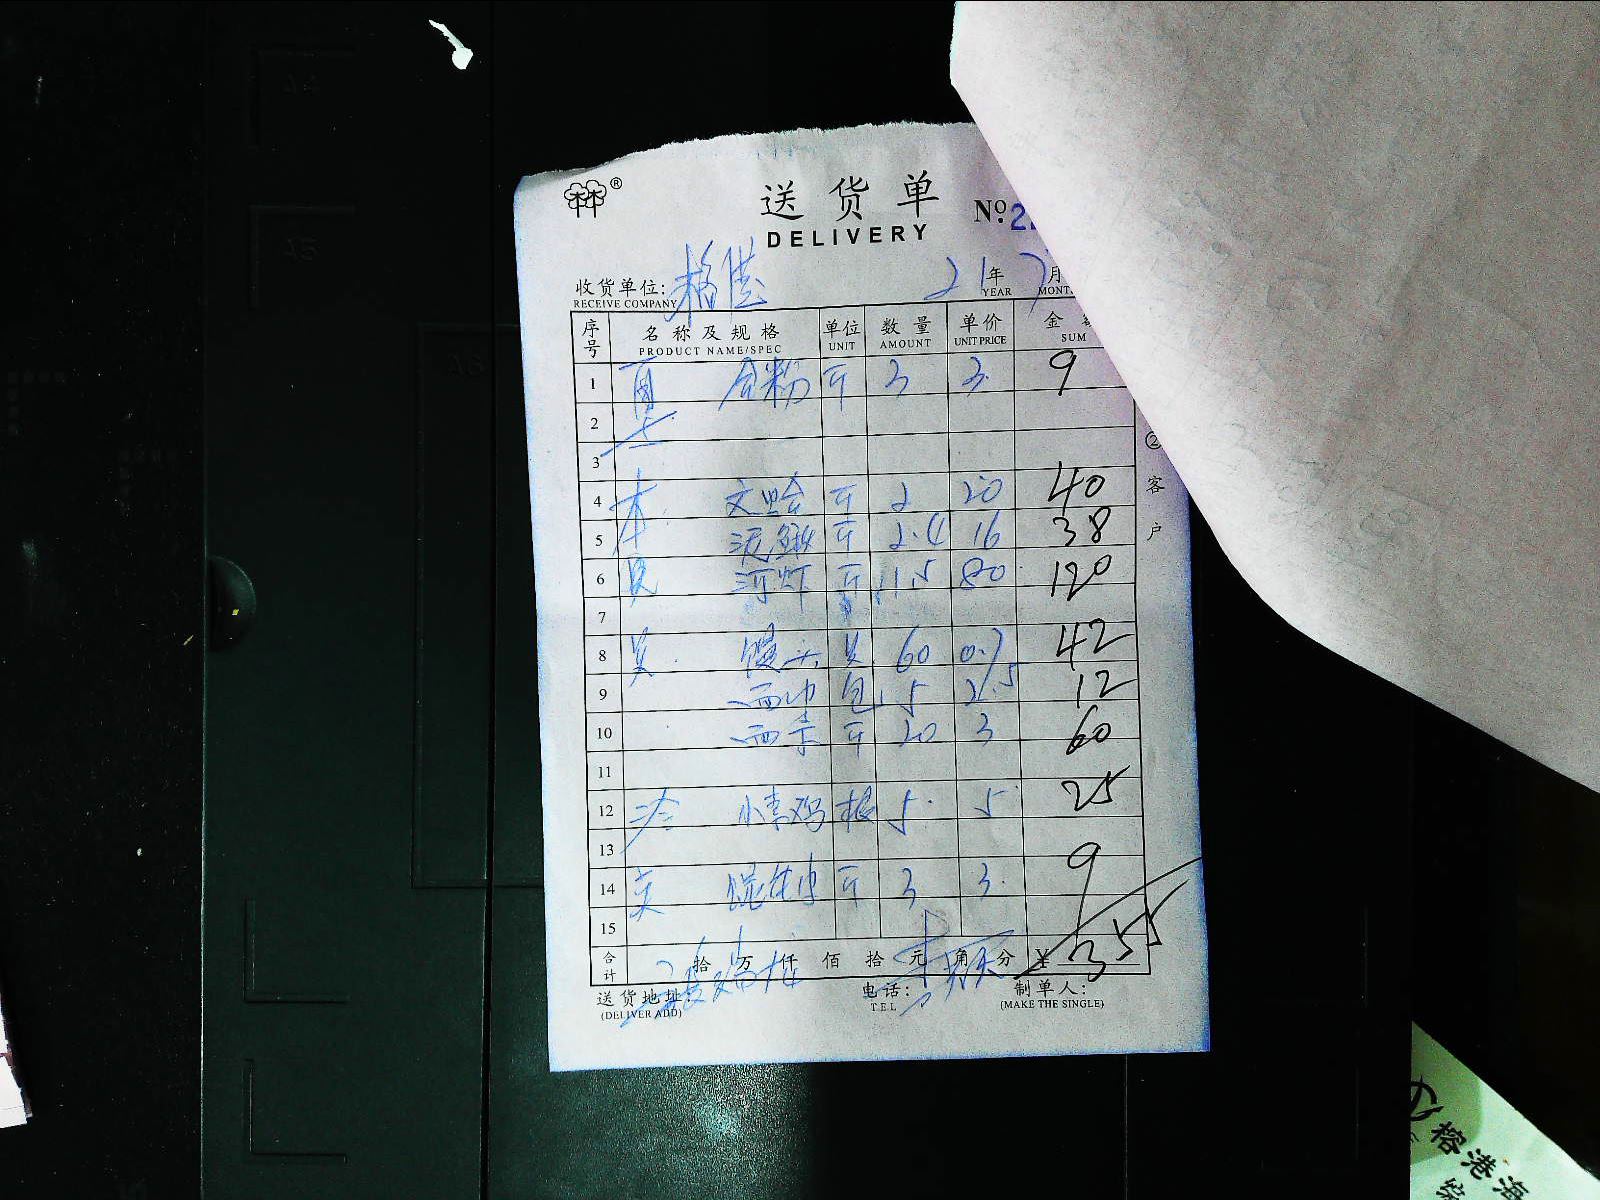 林®
送货单
DELIVERY
№ 2
收货单位:
RECEIVE COMPANY
21 年 7 月
YEAR MONT
序号 名称及规格 单位 数量 单价 金
PRODUCT NAME/SPEC UNIT AMOUNT UNIT PRICE SUM
1 粉 斤 3 3. 9
2
3
4 本. 文蛤 斤 2 20 40
5 泥鳅 斤 2.4 16 38
6 河虾 斤 1.5 80 120
7
8 馒头 只 60 0.7 42
9 面巾 包 5 2.5 12
10 面条 斤 20 3 60
11
12 冷 小素鸡 根 5. 5 25
13
14 馄饨皮 斤 3 3. 9
15
合计 拾万仟佰拾元角分 ¥ 355
送货地址: 电话: 制单人:
(DELIVER ADD) TEL (MAKE THE SINGLE)
②客户
榕港海
A4
A5
A6